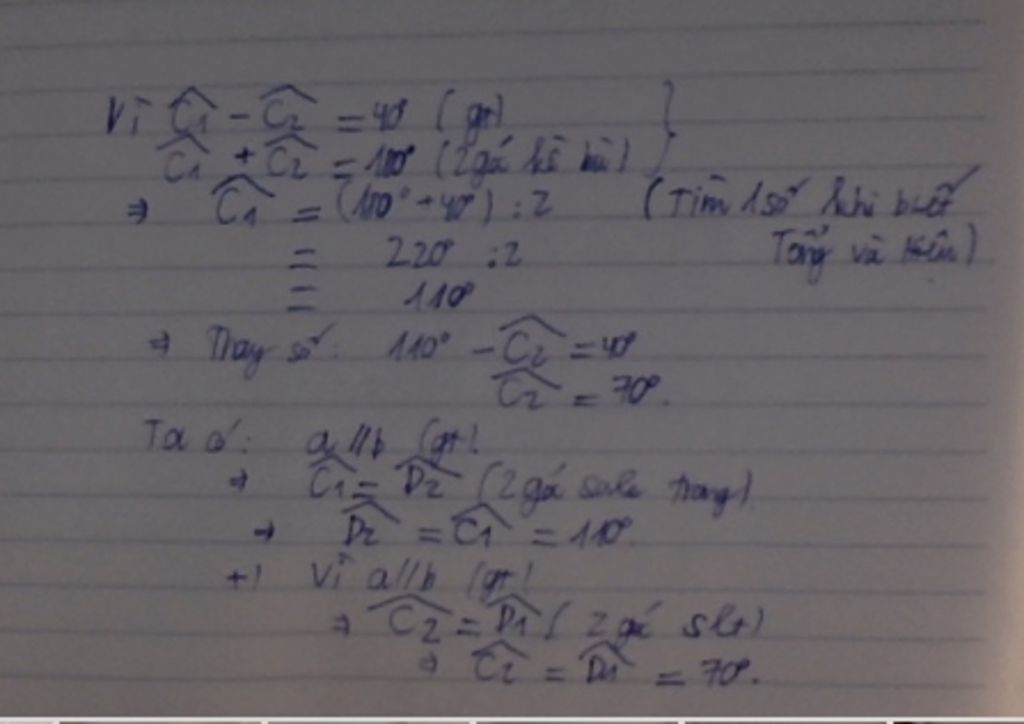 Vì Ĉ1 - Ĉ2 = 40° (gt) }
Ĉ1 + Ĉ2 = 180° (2 góc kề bù)
⇒ Ĉ1 = (180° + 40°) : 2 (Tìm 1 số khi biết
= 220° : 2 Tổng và Hiệu)
= 110°
⇒ Thay số: 110° - Ĉ2 = 40°
Ĉ2 = 70°.
Ta có: a // b (gt)
⇒ Ĉ1 = D̂2 (2 góc sole trong)
⇒ D̂2 = Ĉ1 = 110°.
+) Vì a // b (gt)
⇒ Ĉ2 = D̂1 (2 góc slt)
⇒ Ĉ2 = D̂1 = 70°.